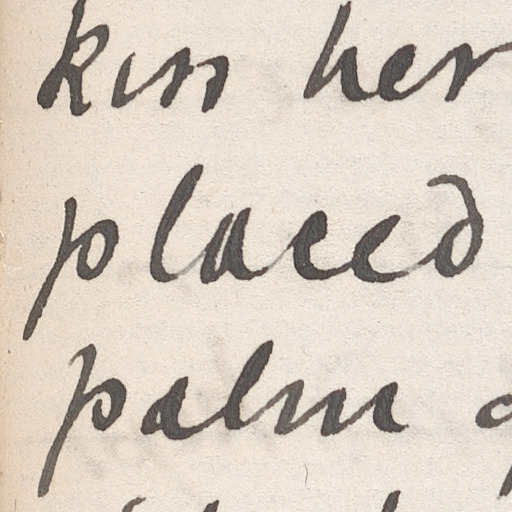 kiss her
placed
palm